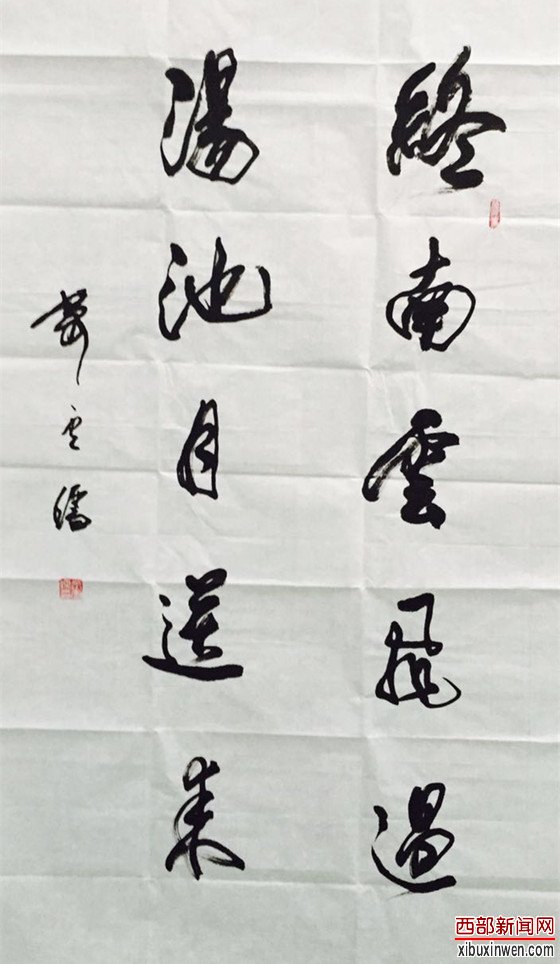 終南雲飛過
湯池月送来
云儒
西部新闻网
xibuxinwen.com